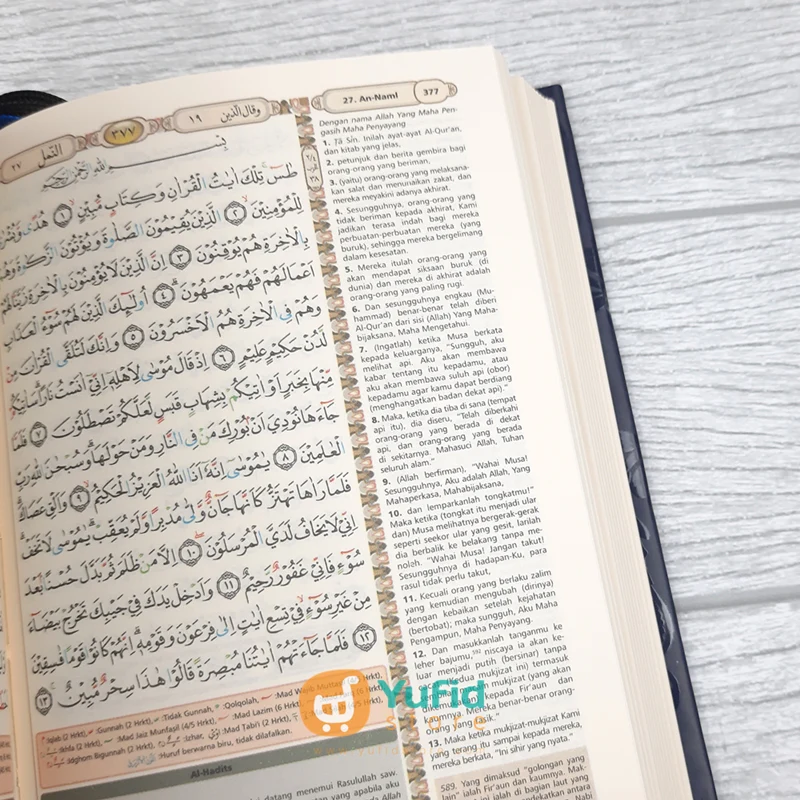 النمل
٢٧
٣٧٧
وقال الذين
١٩
طسۤ تِلْكَ اٰيٰتُ الْقُرْاٰنِ وَكِتَابٍ مُّبِيْنٍ ۙ ١ هُدًى
لِلْمُؤْمِنِيْنَ ۙ ٢ الَّذِيْنَ يُقِيْمُوْنَ الصَّلٰوةَ وَيُؤْتُوْنَ الزَّكٰوةَ
بِالْاٰخِرَةِ هُمْ يُوْقِنُوْنَ ٣ اِنَّ الَّذِيْنَ لَا يُؤْمِنُوْنَ بِالْاٰخِرَةِ زَيَّنَّا لَهُمْ
اَعْمَالَهُمْ فَهُمْ يَعْمَهُوْنَ ۗ ٤ اُولٰۤىِٕكَ الَّذِيْنَ لَهُمْ سُوْۤءُ الْعَذَابِ
وَهُمْ فِى الْاٰخِرَةِ هُمُ الْاَخْسَرُوْنَ ٥ وَاِنَّكَ لَتُلَقَّى الْقُرْاٰنَ مِنْ
لَّدُنْ حَكِيْمٍ عَلِيْمٍ ٦ اِذْ قَالَ مُوْسٰى لِاَهْلِهٖٓ اِنِّيْٓ اٰنَسْتُ نَارًاۗ سَاٰتِيْكُمْ
مِّنْهَا بِخَبَرٍ اَوْ اٰتِيْكُمْ بِشِهَابٍ قَبَسٍ لَّعَلَّكُمْ تَصْطَلُوْنَ ٧ فَلَمَّا
جَاۤءَهَا نُوْدِيَ اَنْۢ بُوْرِكَ مَنْ فِى النَّارِ وَمَنْ حَوْلَهَاۗ وَسُبْحٰنَ اللّٰهِ رَبِّ
الْعٰلَمِيْنَ ٨ يٰمُوْسٰٓى اِنَّهٗٓ اَنَا اللّٰهُ الْعَزِيْزُ الْحَكِيْمُ ۙ ٩ وَاَلْقِ عَصَاكَ
فَلَمَّا رَاٰهَا تَهْتَزُّ كَاَنَّهَا جَاۤنٌّ وَّلّٰى مُدْبِرًا وَّلَمْ يُعَقِّبْۗ يٰمُوْسٰى لَا تَخَفْ
اِنِّيْ لَا يَخَافُ لَدَيَّ الْمُرْسَلُوْنَ ١٠ اِلَّا مَنْ ظَلَمَ ثُمَّ بَدَّلَ حُسْنًاۢ بَعْدَ
سُوْۤءٍ فَاِنِّيْ غَفُوْرٌ رَّحِيْمٌ ١١ وَاَدْخِلْ يَدَكَ فِيْ جَيْبِكَ تَخْرُجْ بَيْضَاۤءَ
مِنْ غَيْرِ سُوْۤءٍ فِيْ تِسْعِ اٰيٰتٍ اِلٰى فِرْعَوْنَ وَقَوْمِهٖۚ اِنَّهُمْ كَانُوْا قَوْمًا فٰسِقِيْنَ ١٢
فَلَمَّا جَاۤءَتْهُمْ اٰيٰتُنَا مُبْصِرَةً قَالُوْا هٰذَا سِحْرٌ مُّبِيْنٌ ١٣
27. An-Naml
377
Dengan nama Allah Yang Maha Pen-
gasih Maha Penyayang
1. Tā Sīn. Inilah ayat-ayat Al-Qur'an,
dan kitab yang jelas,
2. petunjuk dan berita gembira bagi
orang-orang yang beriman,
3. (yaitu) orang-orang yang melaksana-
kan salat dan menunaikan zakat, dan
mereka meyakini adanya akhirat.
4. Sesungguhnya, orang-orang yang
tidak beriman kepada akhirat, Kami
jadikan terasa indah bagi mereka
perbuatan-perbuatan mereka (yang
buruk), sehingga mereka bergelimang
dalam kesesatan.
5. Mereka itulah orang-orang yang
akan mendapat siksaan buruk (di
dunia) dan mereka di akhirat adalah
orang-orang yang paling rugi.
6. Dan sesungguhnya engkau (Mu-
hammad) benar-benar telah diberi
Al-Qur'an dari sisi (Allah) Yang Maha-
bijaksana, Maha Mengetahui.
7. (Ingatlah) ketika Musa berkata
kepada keluarganya, "Sungguh, aku
melihat api. Aku akan membawa
kabar tentang itu kepadamu, atau
aku akan membawa suluh api (obor)
kepadamu agar kamu dapat berdiang
(menghangatkan badan dekat api)."
8. Maka, ketika dia tiba di sana (tempat
api itu), dia diseru, "Telah diberkahi
orang-orang yang berada di dekat
api, dan orang-orang yang berada
di sekitarnya. Mahasuci Allah, Tuhan
seluruh alam."
9. (Allah berfirman), "Wahai Musa!
Sesungguhnya, Aku adalah Allah, Yang
Mahaperkasa, Mahabijaksana,
10. dan lemparkanlah tongkatmu!"
Maka ketika (tongkat itu menjadi ular
dan) Musa melihatnya bergerak-gerak
seperti seekor ular yang gesit, larilah
dia berbalik ke belakang tanpa me-
noleh. "Wahai Musa! Jangan takut!
Sesungguhnya di hadapan-Ku, para
rasul tidak perlu takut,
11. Kecuali orang yang berlaku zalim
yang kemudian mengubah (dirinya)
dengan kebaikan setelah kejahatan
(bertobat); maka sungguh, Aku Maha
Pengampun, Maha Penyayang.
12. Dan masukkanlah tanganmu ke
leher bajumu, niscaya ia akan ke-
luar menjadi putih (bersinar) tanpa
mukjizat ini) termasuk
mukjizat (yang akan
kepada Fir'aun dan
Mereka benar-benar orang-
orang yang fasik."
13. Maka ketika mukjizat-mukjizat Kami
yang terang itu sampai kepada mereka,
mereka berkata, "Ini sihir yang nyata."
Yufid
store
Al-Hadits
datang menemui Rasulullah saw.
589. Yang dimaksud "golongan yang
lain" ialah Fir'aun dan kaumnya. Mak-